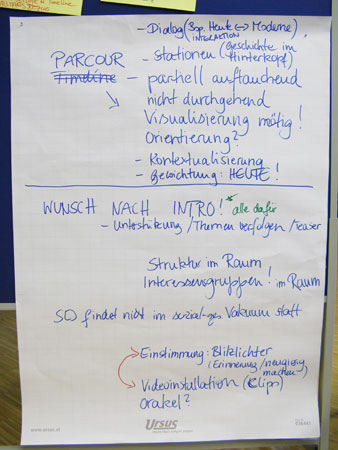 - Dialog (Bsp. Heute <-> Moderne)
INTERAKTION
- Stationen (Geschichte im Hinterkopf)
PARCOUR
Timeline
- partiell auftauchend
nicht durchgehend
Visualisierung nötig!
Orientierung?
- Kontextualisierung
- Gewichtung: HEUTE!
WUNSCH NACH INTRO! alle dafür
- Unterstützung / Themen verfolgen / teaser
Struktur im Raum
Interessensgruppen! im Raum
findet nicht im sozial-ges Vakuum statt
Einstimmung: Blitzlichter
(Erinnerung / neugierig
machen)
Videoinstallation (Clips)
Orakel?
www.ursus.at
Ursus